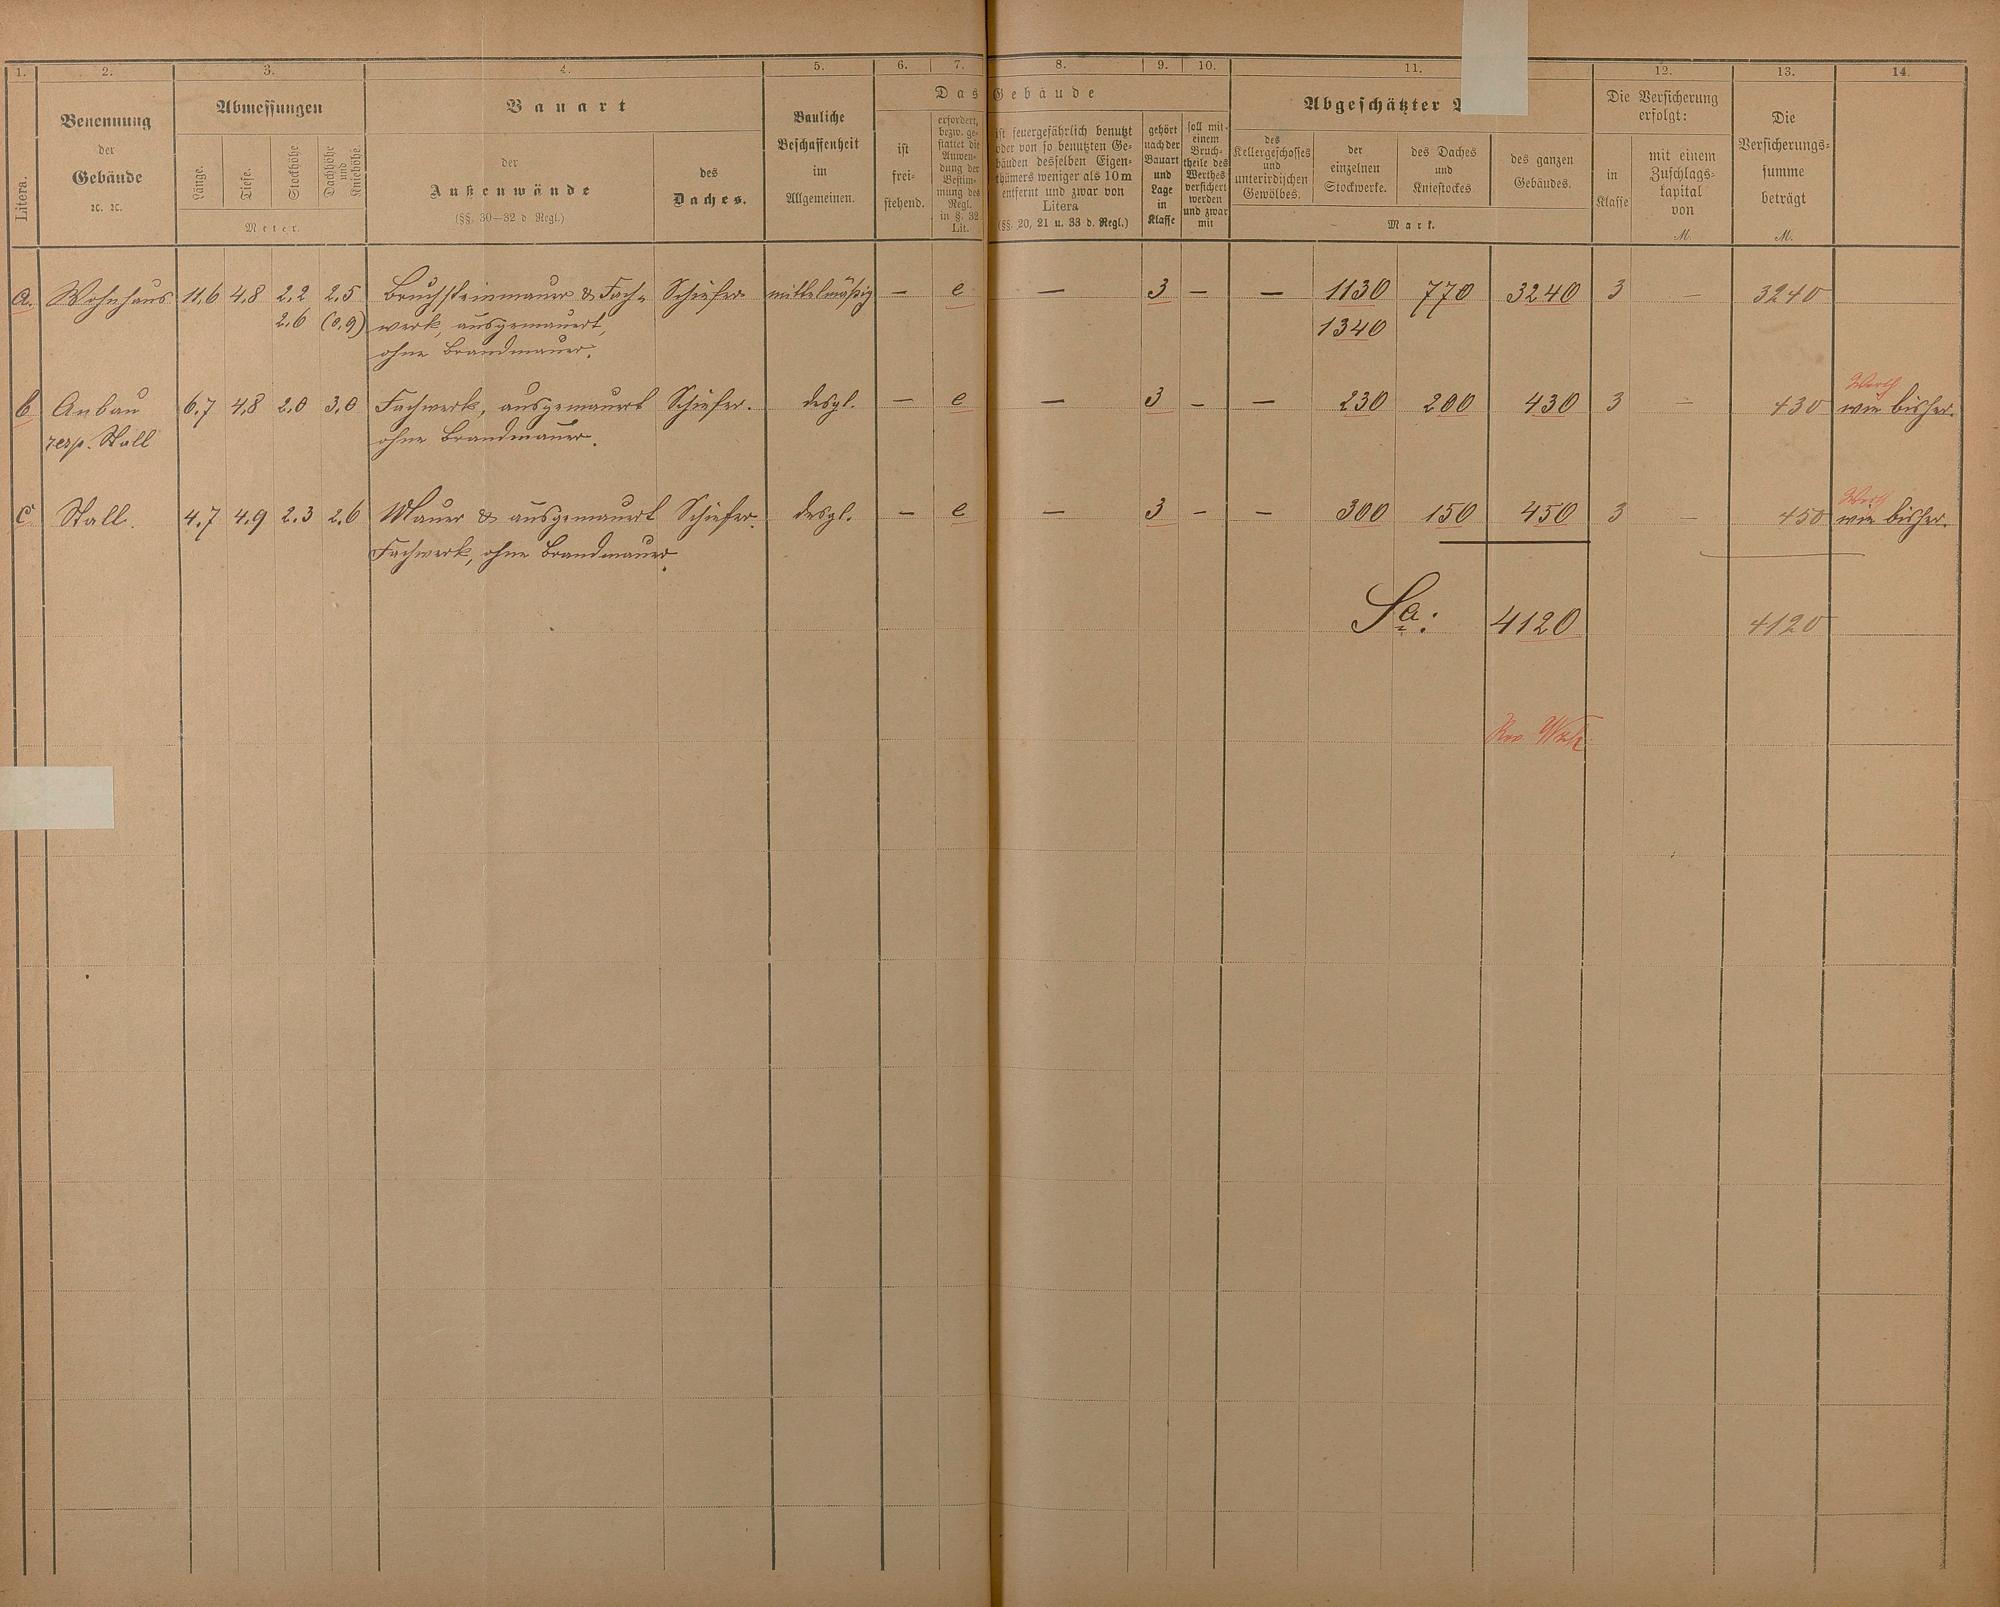 1. 2. 3. 4. 5. 6. 7. 8. 9. 10. 11. 12. 13. 14.
Litera.
Benennung
der
Gebäude
ꝛc. ꝛc.
Abmessungen
Länge.
Tiefe.
Stockhöhe
Dachhöhe
und
Kniehöhe.
Meter.
Bauart
der
Außenwände
(§§. 30–32 d Regl.)
des
Daches.
Bauliche
Beschaffenheit
im
Allgemeinen.
Das Gebäude
ist
frei-
stehend.
erfordert,
bezw. ge-
stattet die
Anwen-
dung der
Bestim-
mung des
Regl.
in §. 32
Lit.
ist feuergefährlich benutzt
oder von so benutzten Ge-
bäuden desselben Eigen-
thümers weniger als 10 m
entfernt und zwar von
Litera
(§§. 20, 21 u. 33 d. Regl.)
gehört
nach der
Bauart
und
Lage
in
Klasse
soll mit
einem
Bruch-
theile des
Werthes
versichert
werden
und zwar
mit
Abgeschätzter
des
Kellergeschosses
und
unterirdischen
Gewölbes.
der
einzelnen
Stockwerke.
des Daches
und
Kniestockes.
des ganzen
Gebäudes.
Mark.
Die Versicherung
erfolgt:
in
Klasse
mit einem
Zuschlags-
kapital
von
M.
Die
Versicherungs-
summe
beträgt
M.
a. Wohnhaus 11.6 4.8 2.2 2.5 Bruchsteinmauer & Fach- Schiefer mittelmäßig — e — 3 — — 1130 770 3240 3 — 3240
2.6 (0.9) werk, ausgemauert, 1340
ohne Brandmauer.
Werth
b Anbau 6.7 4.8 2.0 3.0 Fachwerk, ausgemauert Schiefer. desgl. — e — 3 — — 230 200 430 3 — 430 wie bisher.
resp. Stall ohne Brandmauer.
Werth
c. Stall. 4.7 4.9 2.3 2.6 Mauer & ausgemauert Schiefer. desgl. — e — 3 — — 300 150 450 3 — 450 wie bisher.
Fachwerk, ohne Brandmauer.
Sa: 4120 4120